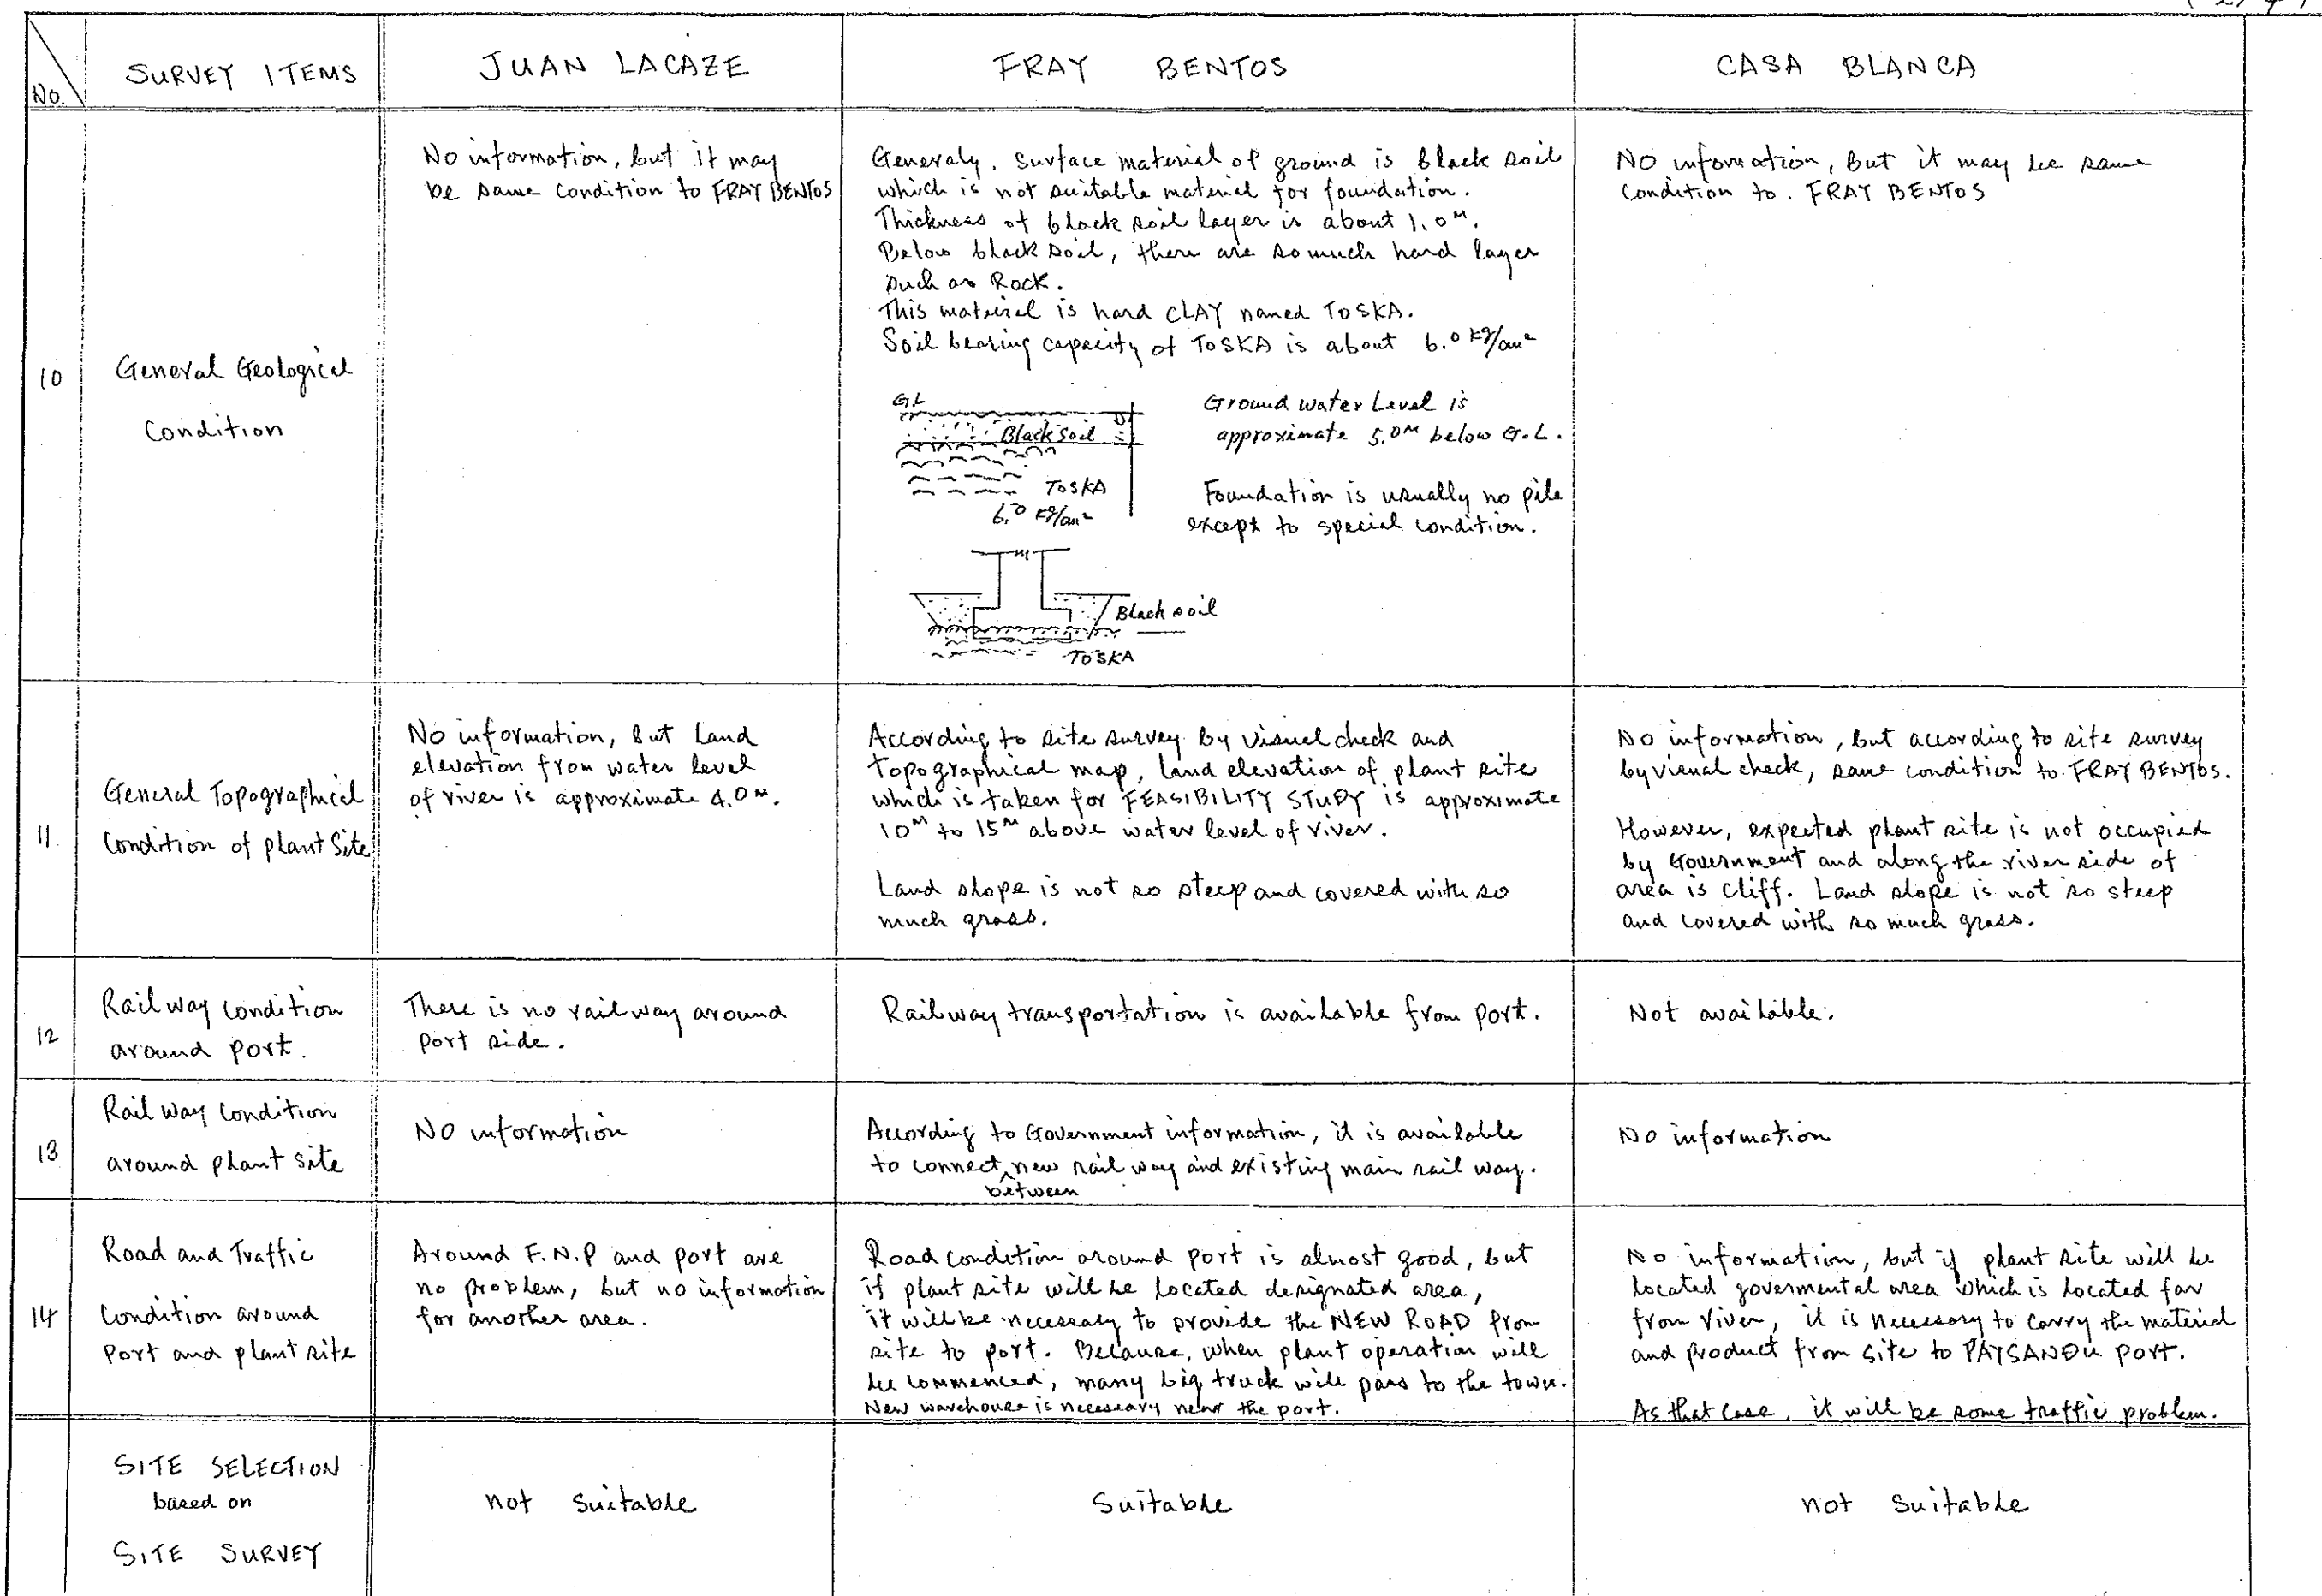 No.
SURVEY ITEMS
JUAN LACAZE
FRAY BENTOS
CASA BLANCA
10
General Geological
Condition
No information, but it may
be same condition to FRAY BENTOS
Generaly, surface material of ground is black soil
which is not suitable material for foundation.
Thickness of black soil layer is about 1.0M.
Below black soil, there are so much hard layer
such as Rock.
This material is hard CLAY named TOSKA.
Soil bearing capacity of TOSKA is about 6.0 kg/cm²
G.L
Black soil
TOSKA
6.0 kg/cm²
Ground water Level is
approximate 5.0M below G.L.
Foundation is usually no pile
except to special condition.
Black soil
TOSKA
No information, but it may be same
condition to. FRAY BENTOS
11.
General Topographical
Condition of plant Site
No information, but Land
elevation from water level
of river is approximate 4.0M.
According to site survey by visual check and
topographical map, land elevation of plant site
which is taken for FEASIBILITY STUDY is approximate
10M to 15M above water level of river.
Land slope is not so steep and covered with so
much grass.
No information, but according to site survey
by visual check, same condition to FRAY BENTOS.
However, expected plant site is not occupied
by Government and along the river side of
area is cliff. Land slope is not so steep
and covered with so much grass.
12
Railway condition
around port.
There is no railway around
port side.
Railway transportation is available from port.
Not available.
13
Railway condition
around plant site
No information
According to Government information, it is available
to connect new rail way and existing main rail way.
between
No information
14
Road and Traffic
Condition around
Port and plant site
Around F.N.P and port are
no problem, but no information
for another area.
Road condition around port is almost good, but
if plant site will be located designated area,
it will be necessary to provide the NEW ROAD from
site to port. Because, when plant operation will
be commenced, many big truck will pass to the town.
New warehouse is necessary near the port.
No information, but if plant site will be
located govermental area which is located far
from river, it is necessary to carry the material
and product from site to PAYSANDU port.
As that case, it will be some traffic problem.
SITE SELECTION
based on
SITE SURVEY
not suitable
Suitable
not suitable